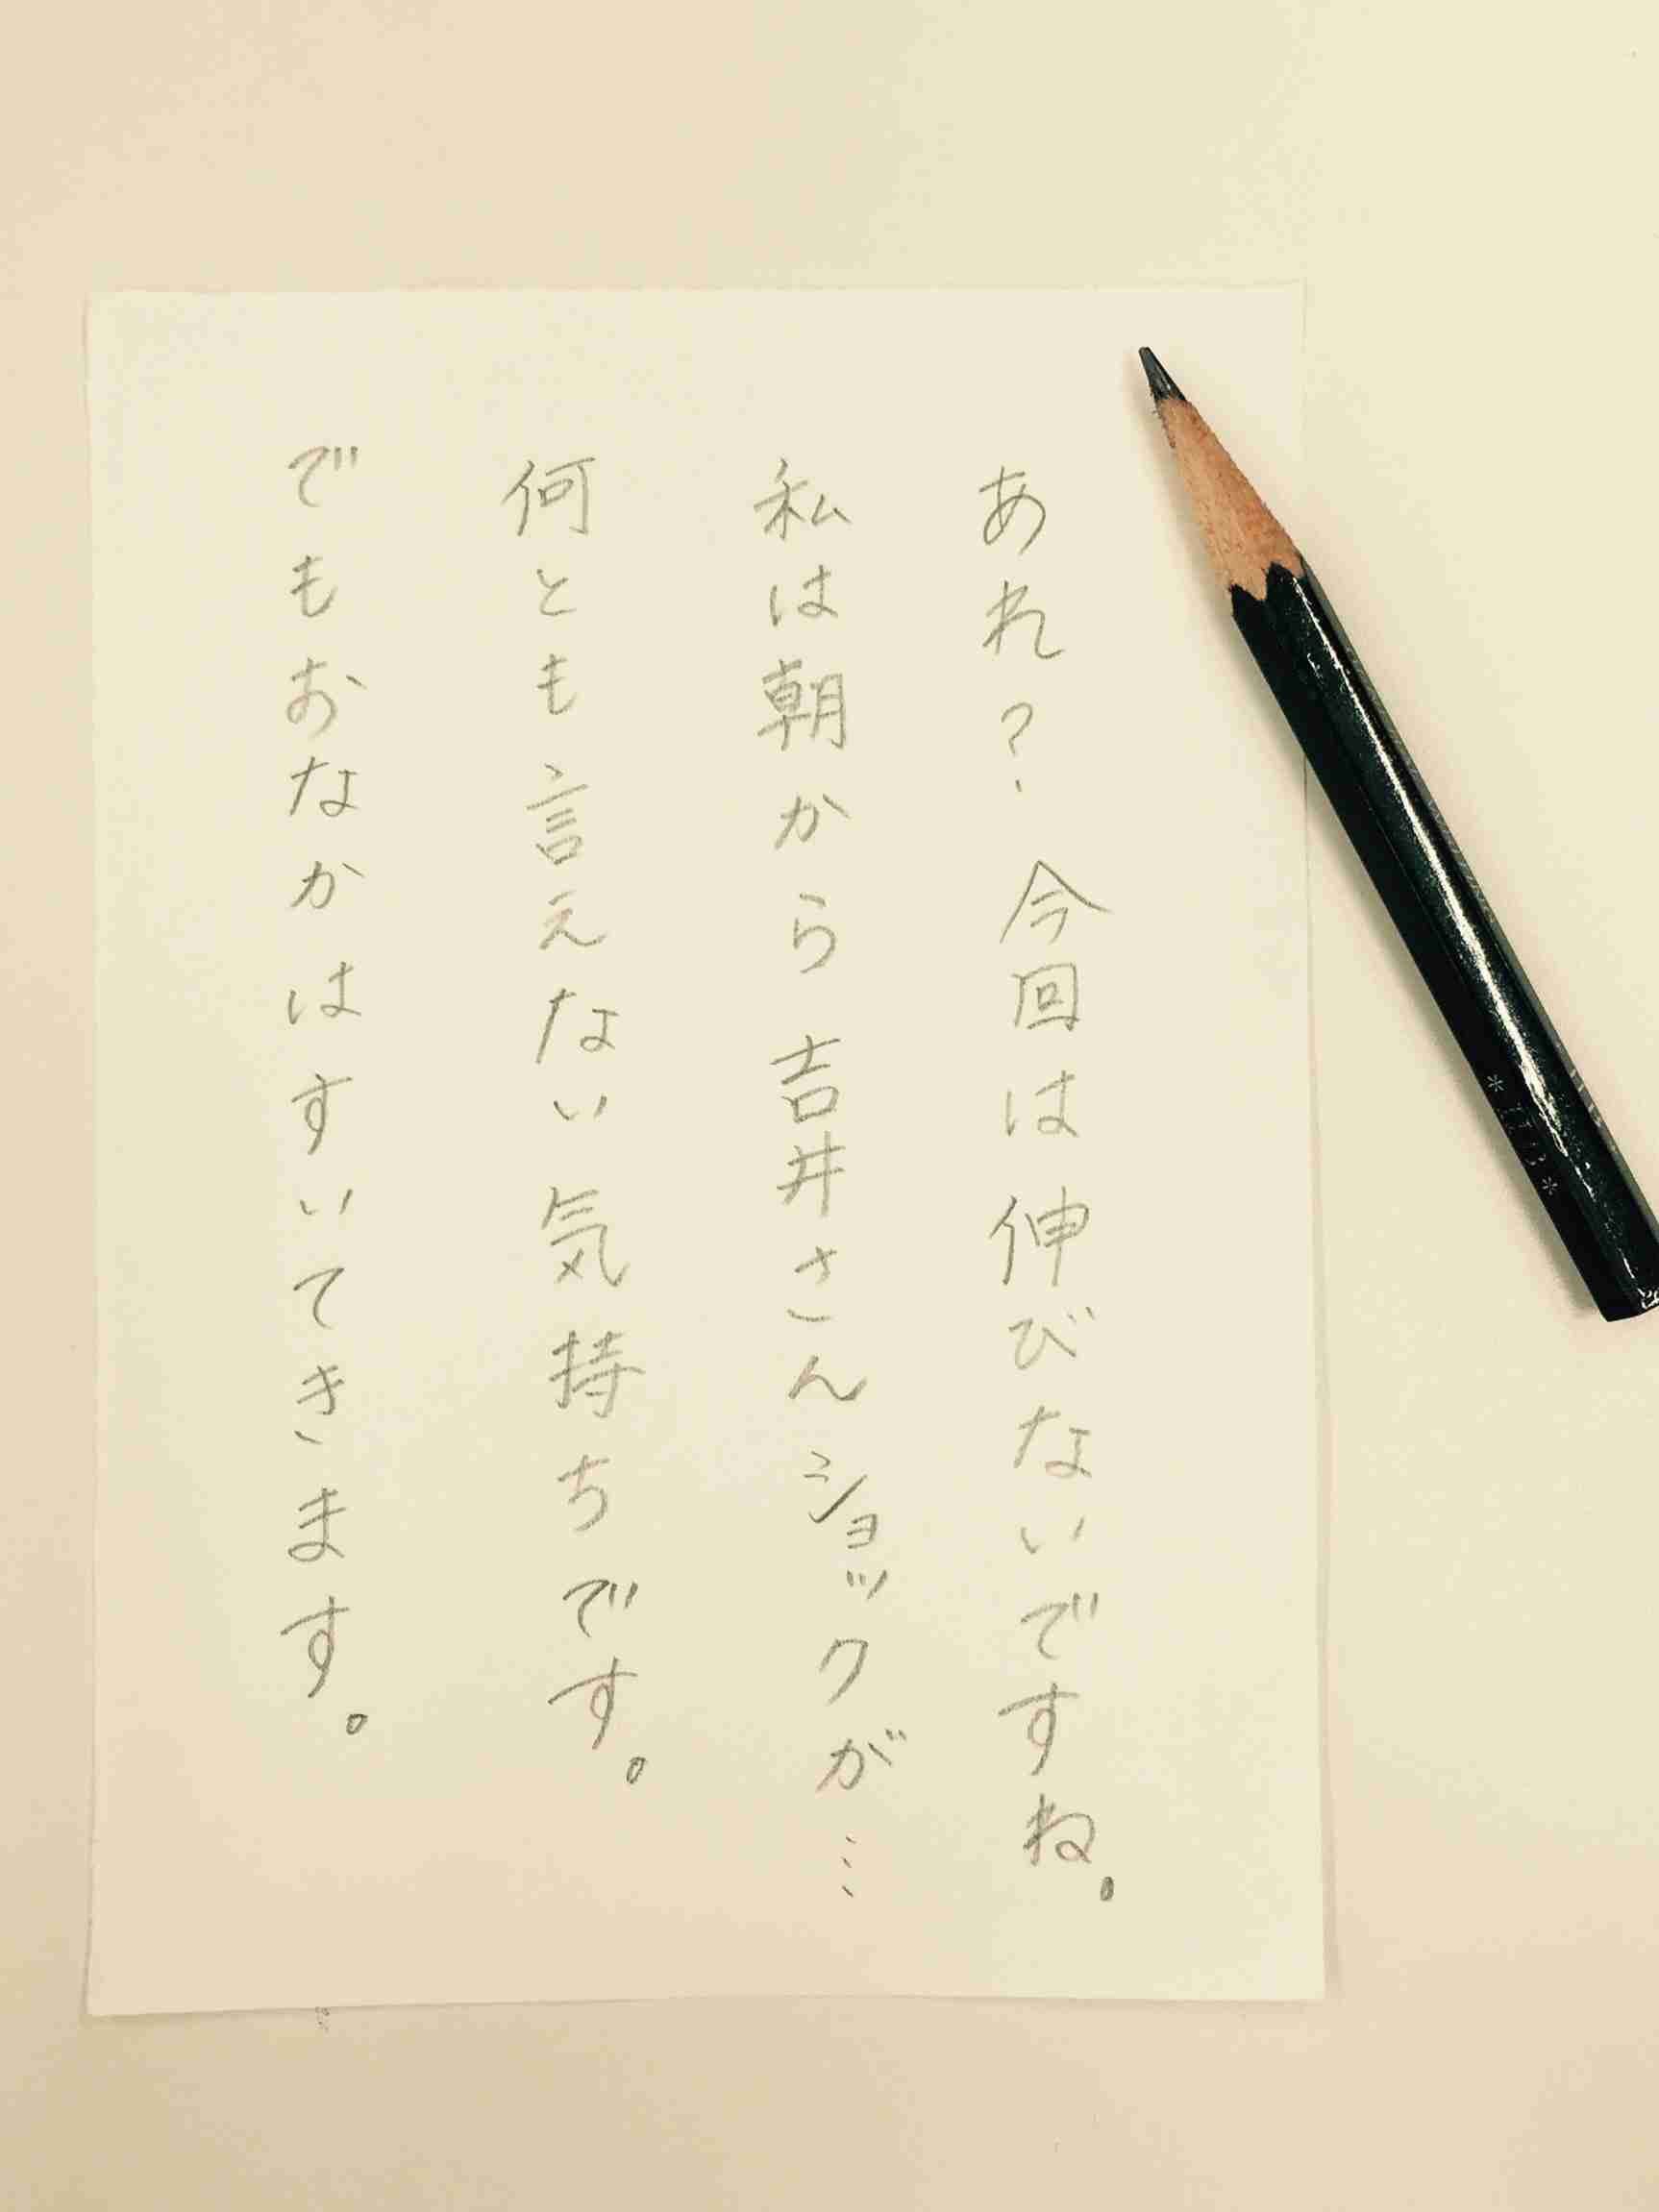 あれ？今回は伸びないですね。
私は朝から吉井さんショックが…
何とも言えない気持ちです。
でもおなかはすいてきます。